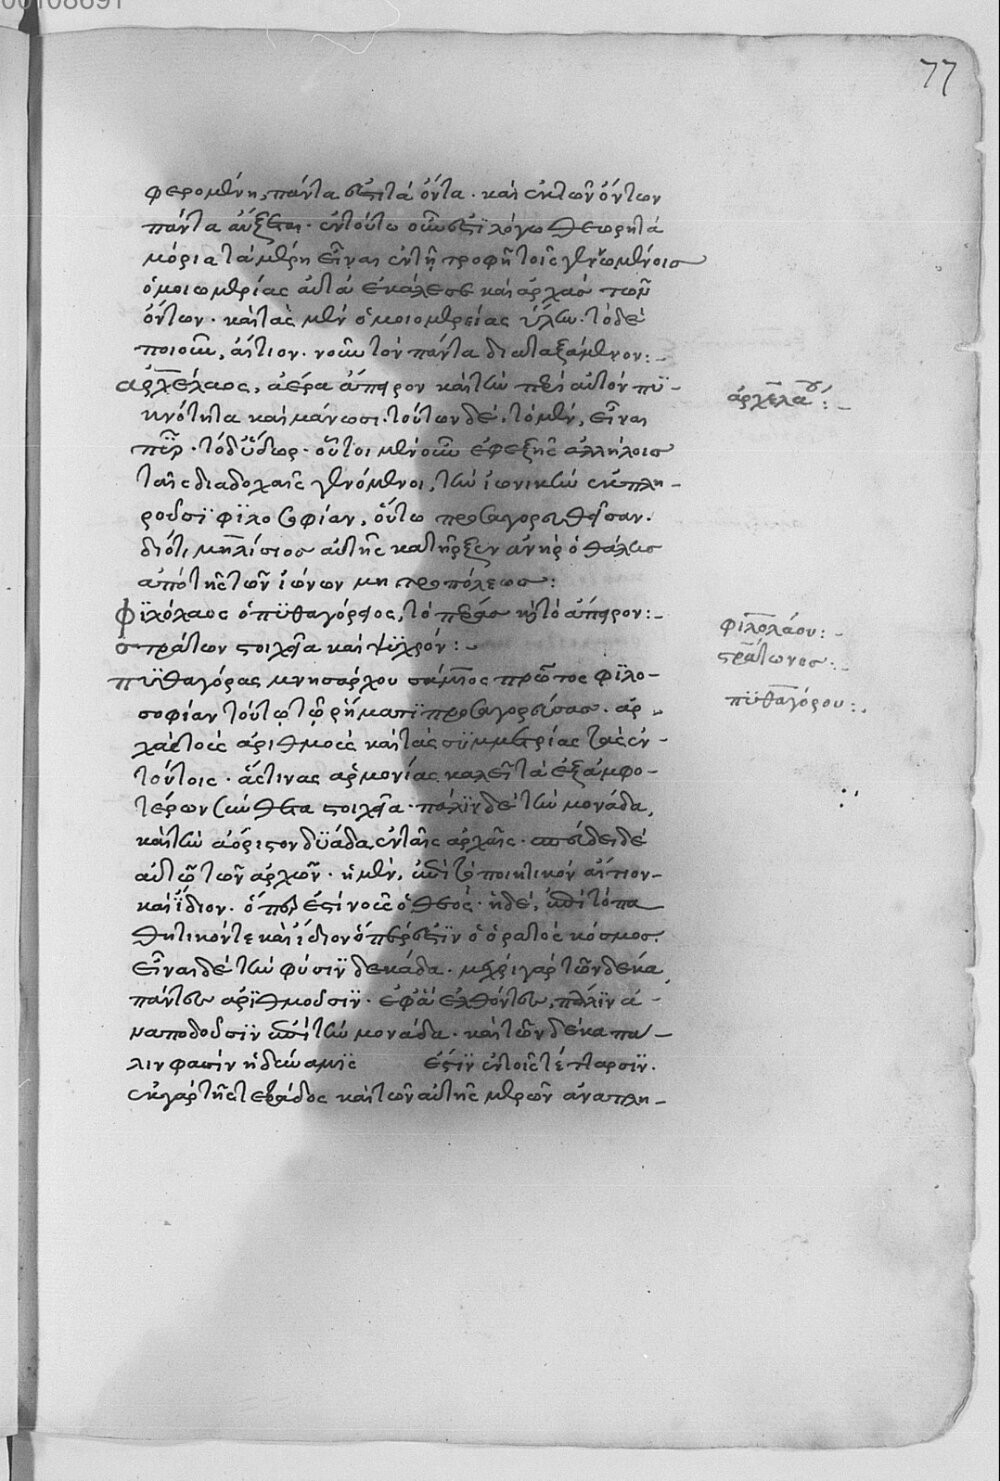 00108691
77
φερομένη, πάντα ἐστὶ τὰ ὄντα· καὶ ἐκ τῶν ὄντων
πάντα αὔξεται· ἐν τούτω οὖν ἐστὶ λόγω θεωρητὰ
μόρια τὰ μέρη εἶναι ἐν τῇ τροφῇ τοῖς γεννωμένοις
ὁμοιομερίας αὐτὰ ἐκάλεσε καὶ ἀρχὰς τῶν
ὄντων· καὶ τὰς μὲν ὁμοιομερείας ὕλην· τὸ δὲ
ποιοῦν, αἴτιον· νοῦν τὸν πάντα διαταξάμενον:-
ἀρχέλαος, ἀέρα ἄπειρον καὶ τὴν περὶ αὐτὸν πϋ-
κνότητα καὶ μάνωσι· τούτων δὲ, τὸ μὲν, εἶναι
πῦρ· τὸ δ' ὕδωρ· οὗτοι μὲν οὖν ἐφεξῆς ἀλλήλοις
ταῖς διαδοχαῖς γενόμενοι, τὴν ἰωνικὴν συμπλη-
ροῦσϊ φϊλοσοφίαν, οὕτω προσαγορευθεῖσαν.
διότι μηλίσιος αὐτῆς κατῆρξεν ἀνὴρ ὁ θάλης
ἀπὸ τῆς τῶν ἰώνων μητροπόλεως:
φϊλόλαος ὁ πϋθαγόρειος, τὸ πέρας κ τὸ ἄπειρον:-
στράτων στοιχεῖα καὶ ψϋχρόν:-
πϋθαγόρας μνησάρχου σάμιος πρῶτος φϊλο-
σοφίαν τούτω τῷ ῥήματϊ προσαγορεύσας· ἀρ-
χὰς τοὺς ἀριθμοὺς καὶ τὰς σϋμμετρίας τὰς ἐν
τούτοις· ἅστινας ἁρμονίας καλεῖ τὰ ἐξ ἀμφο-
τέρων σύνθετα στοιχεῖα· πάλϊν δὲ τὴν μονάδα,
καὶ τὴν ἀόριστον δϋάδα, ἐν ταῖς ἀρχαῖς· σπεύδει δὲ
αὐτῷ τῶν ἀρχῶν· ἡ μὲν, ἐπὶ τὸ ποιητικὸν αἴτιον
καὶ ἴδιον· ὅπερ ἐστὶ νοῦς ὁ θεός· ἡ δὲ, ἐπὶ τὸ πα
θητικόν τε καὶ ἴδιον ὅπερ ἐστὶν ὁ ὁρατὸς κόσμος.
εἶναι δὲ τὴν φύσϊν δεκάδα· μέχρι γὰρ τῶν δέκα
πάντες ἀρϊθμοῦσϊν· ἐφ' ἃ ἐλθόντες, πάλϊν ἀ-
ναποδοῦσϊν ἐπὶ τὴν μονάδα· καὶ τῶν δέκα πα-
λιν φασὶν ἡ δύναμϊς ἐστϊν ἐν τοῖς τέτταρσϊν.
ἐκ γὰρ τῆς τετράδος καὶ τῶν αὐτῆς μερῶν ἀναπλη-
ἀρχελάου:-
φιλολάου:-
στράτωνος:-
πϋθαγόρου:.